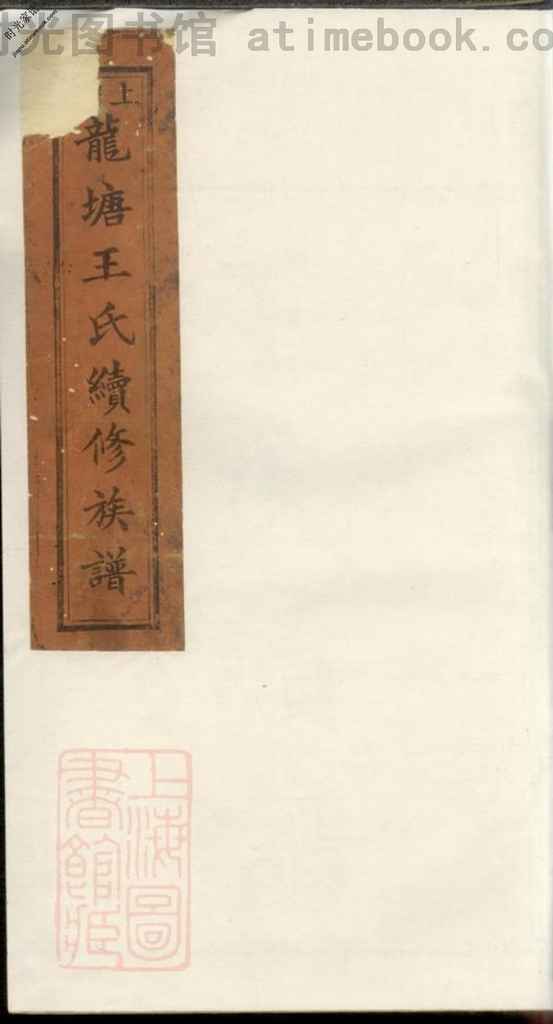 时光图书馆 atimebook.co
上
龍塘王氏續修族譜
上海圖
書館藏